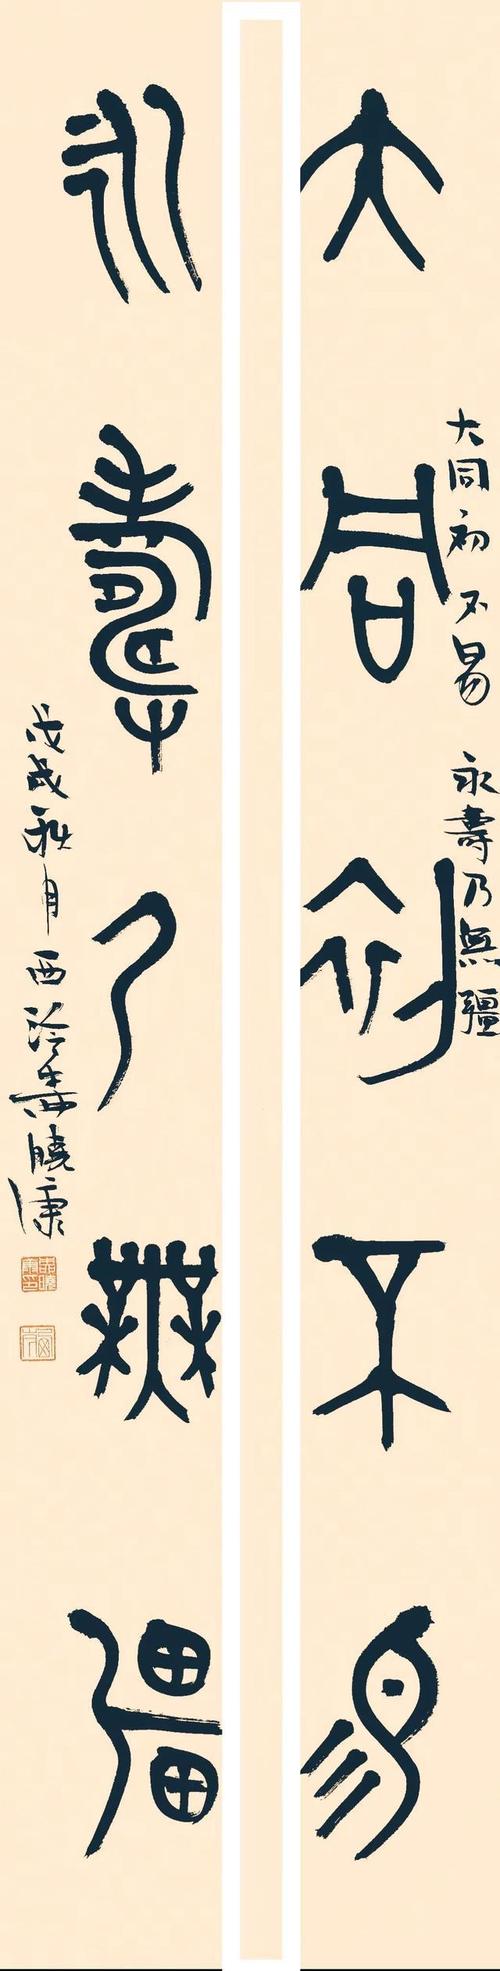 大同初不易
大同初不易 永壽乃無彊
永壽乃無彊
戊戌秋月西泠曉康